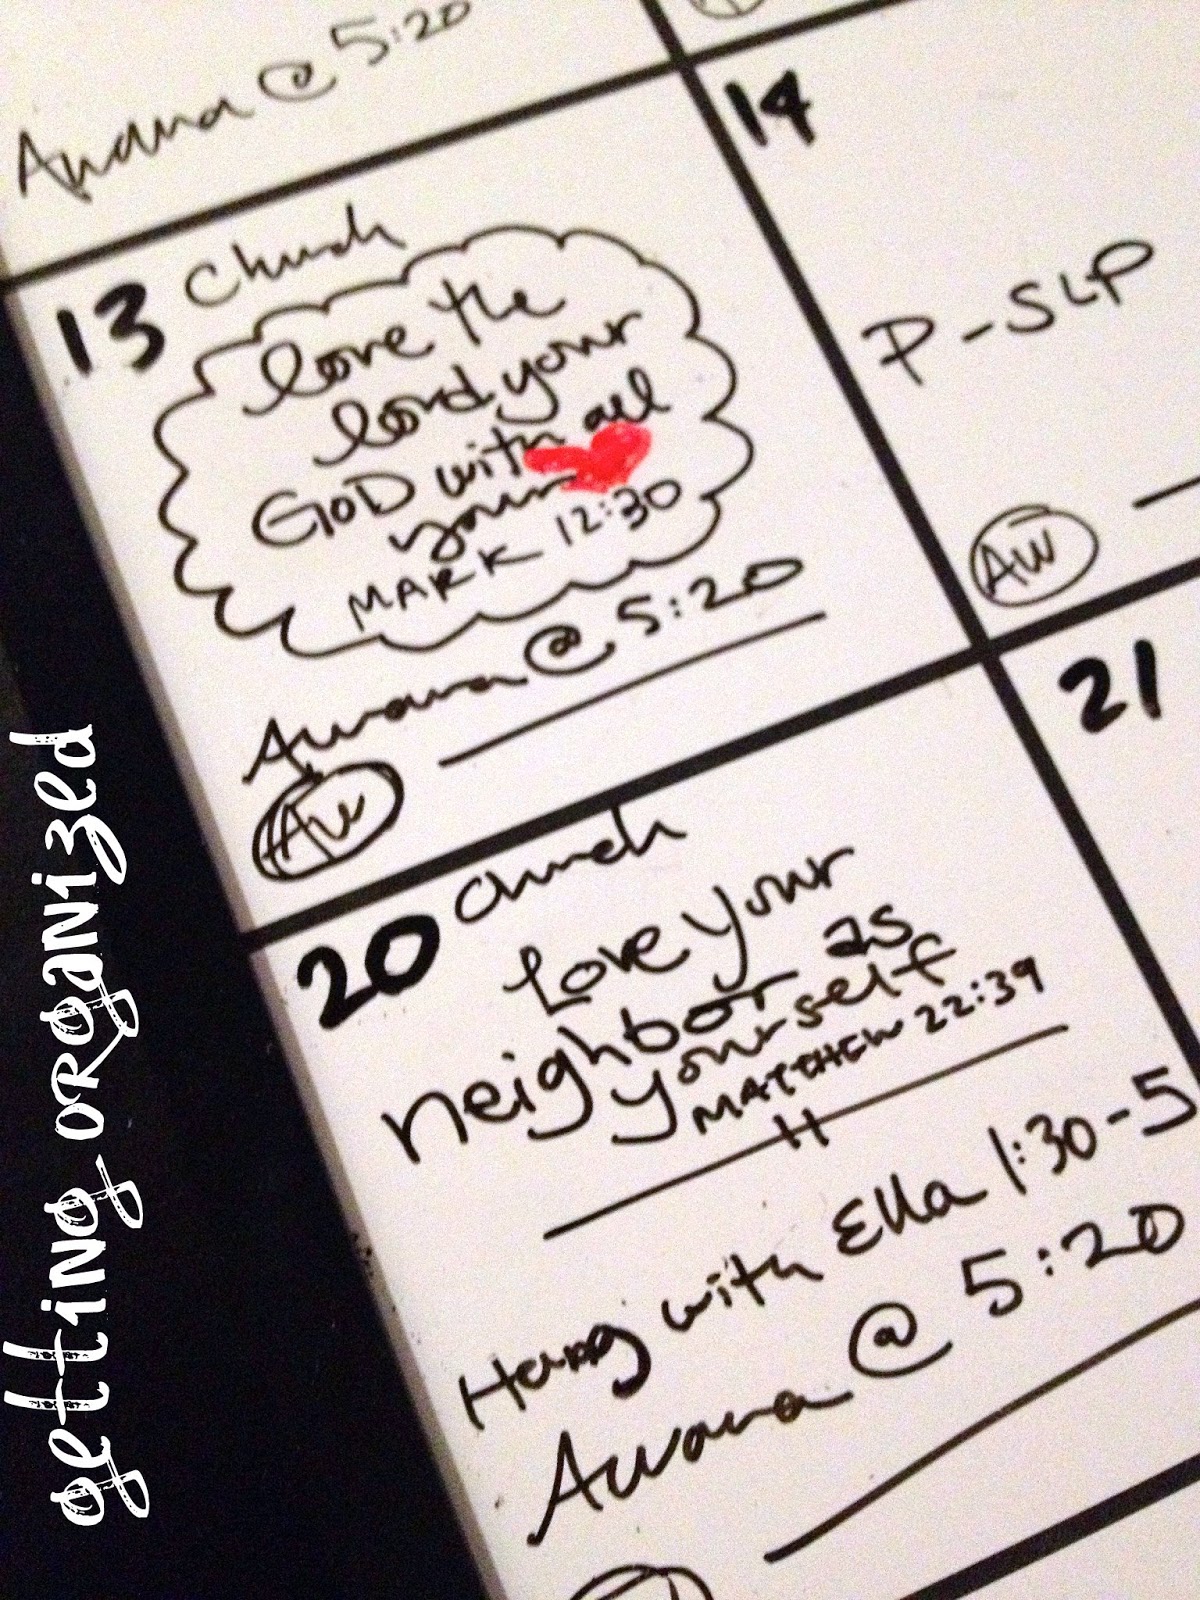 Awana @ 5:20
13 Church
love the
lord your
GOD with all
your
MARK 12:30
Awana @ 5:20
AW
14
P-SLP
AW
20 Church
Love your
neighbor as
yourself
MATTHEW 22:39
Hang with Ella 1:30-5
Awana @ 5:20
21
getting organized